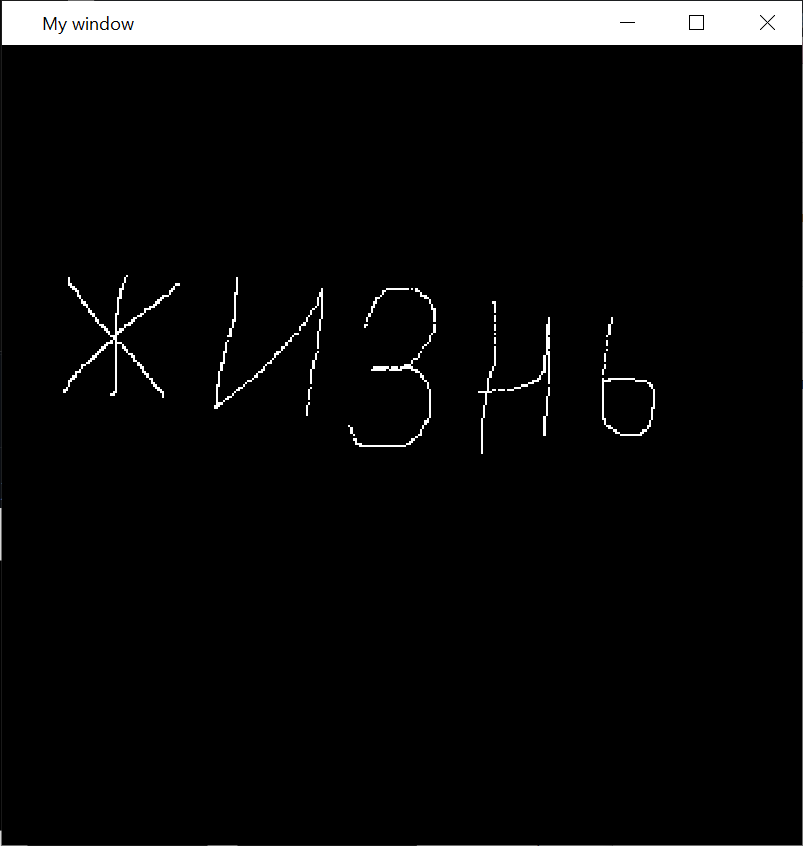 My window
ЖИЗНЬ